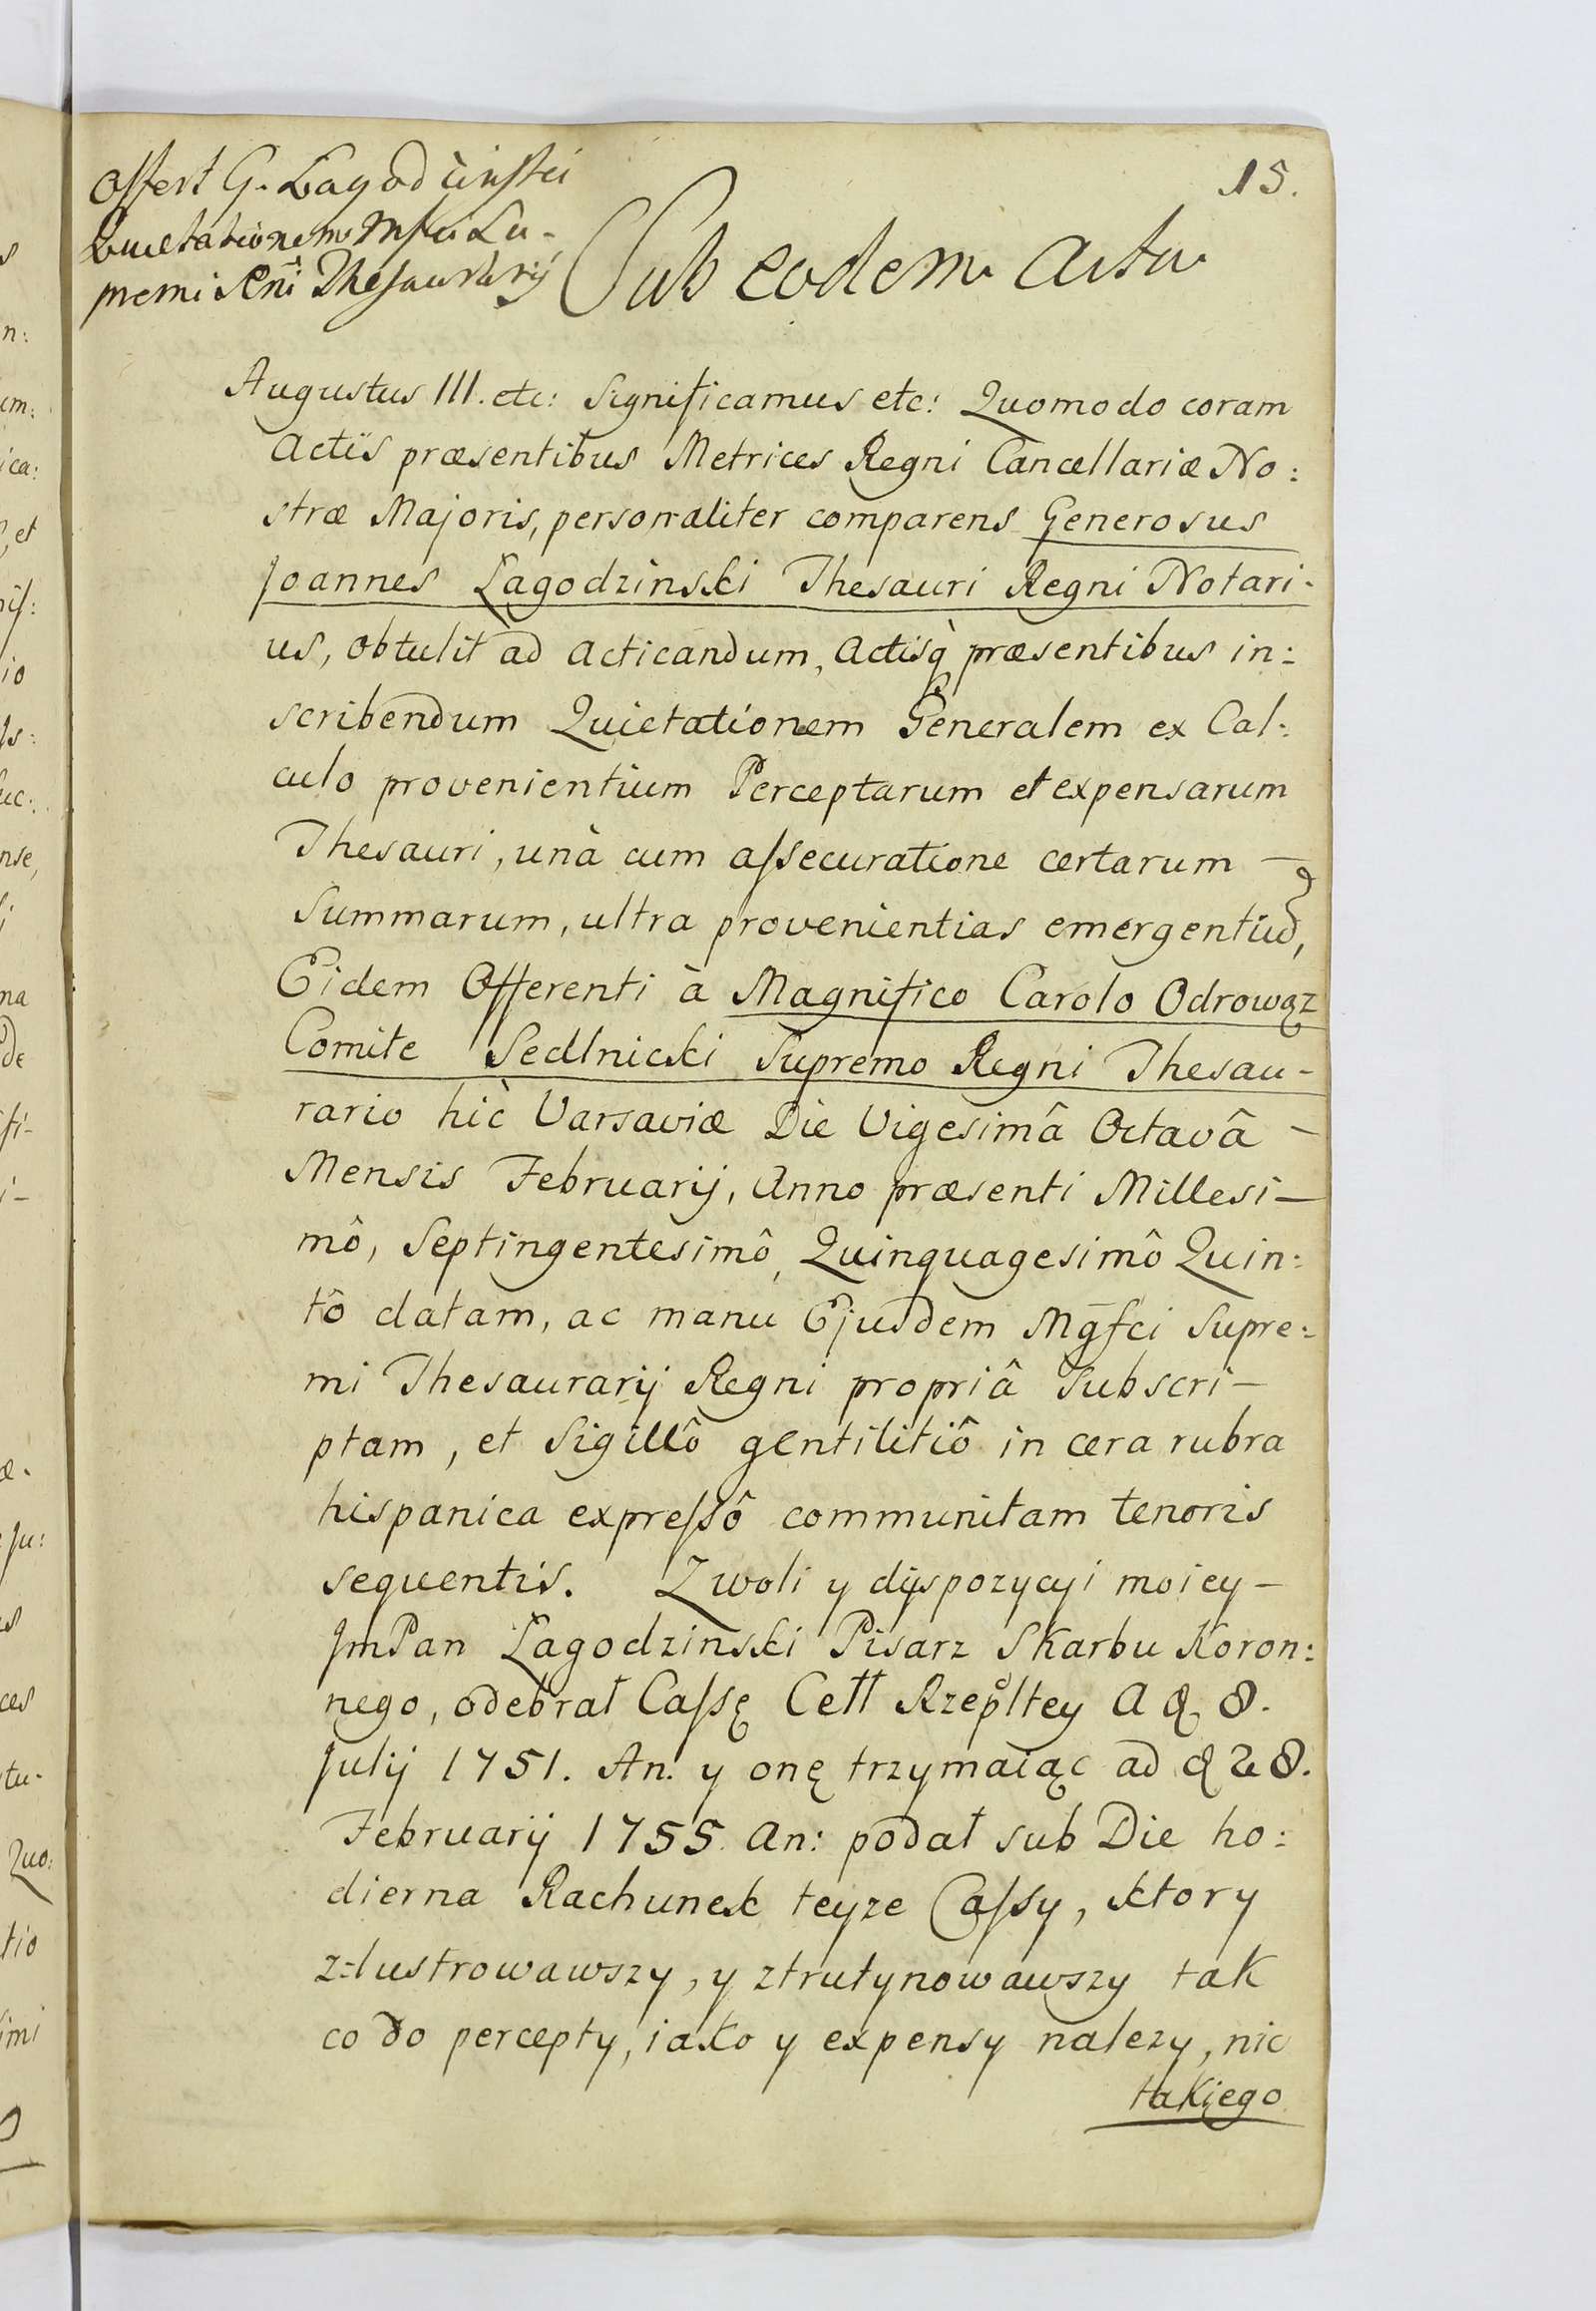 15.
Offert G. Lagodzinski
Quietationem Mfci Su-
premi Rni Thesaurarij
Sub eodem Actu
Augustus III. etc: Significamus etc: Quomodo coram
Actis præsentibus Metrices Regni Cancellariæ No:
stræ Majoris, personaliter comparens Generosus
Joannes Łagodzinski Thesauri Regni Notari-
us, obtulit ad acticandum, Actisq̀ præsentibus in:
scribendum Quietationem Generalem ex Cal:
culo provenientium Perceptarum et expensarum
Thesauri, unà cum aſsecuratione certarum –
Summarum, ultra provenientias emergentiū,
Eidem Offerenti à Magnifico Carolo Odrowąz
Comite Sedlnicki Supremo Regni Thesau-
rario hìc Varsaviæ Die Vigesimâ Octavâ –
Mensis Februarij, Anno præsenti Millesi-
mô, Septingentesimô, Quinquagesimô Quin:
tô datam, ac manu Ejusdem Mḡfci Supre:
mi Thesaurarij Regni propriâ Subscri-
ptam, et Sigillô gentilitiô in cera rubra
hispanica expreſsô communitam tenoris
sequentis. Z woli y dyspozycyi moiey –
JmPan Łagodzinski Pisarz Skarbu Koron:
nego, odebrał Caſsę Cełł Rzepltey A d. 8.
Julij 1751. An. y onę trzymaiąc ad d 28.
Februarij 1755. An: podał sub Die ho:
dierna Rachunek teyze Caſsy, ktory
z-lustrowawszy, y ztrutynowawszy tak
co do percepty, iako y expensy nalezy, nic
takiego